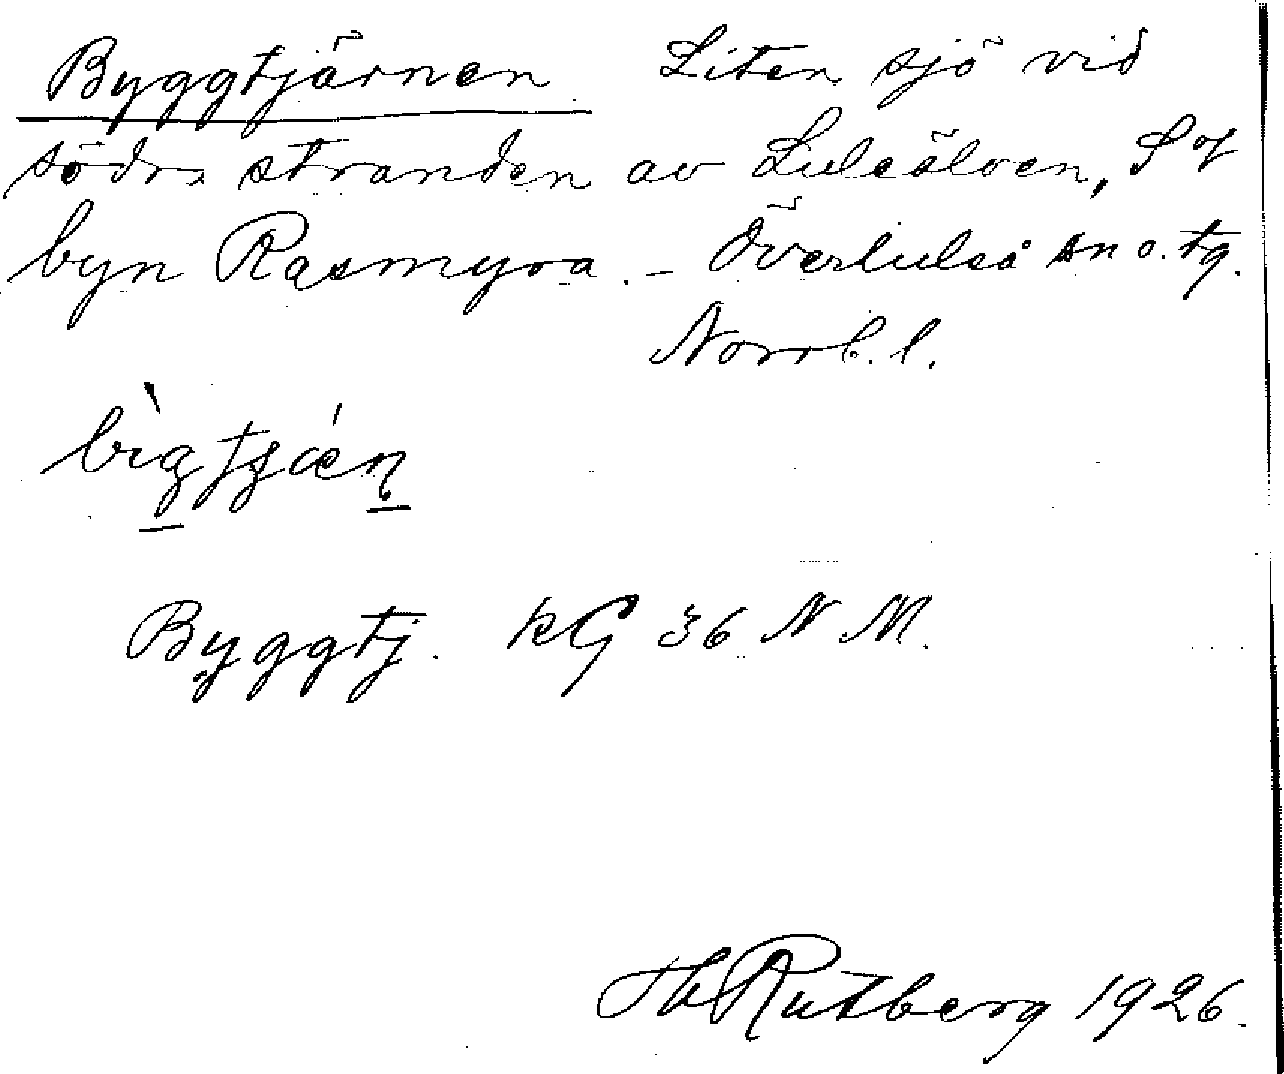 Byggtjärnen Liten sjö vid
södra stranden av Luleälven, S of
byn Rasmyra. - Överluleå sn o. tg.
Norrb. l.
Byggtj. kG 36 N M.
Hb Rutberg 1926.